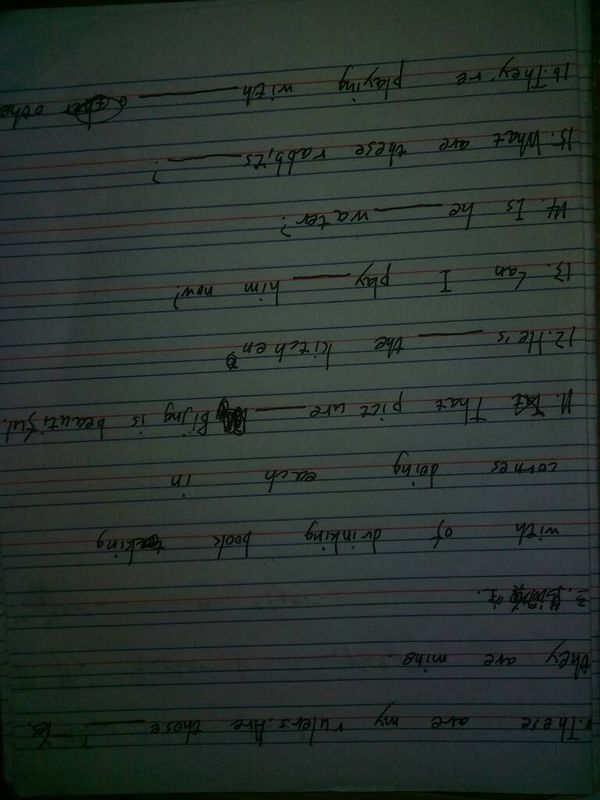 These are my rulers. Are these ____? Yes,
they are mine.
3.
with of drinking book
cornes doing each in
11. That picture ____ Bijng is beautiful.
12. He's ____ the kitchen
13. Can I play ____ him now?
14. Is he ____ water?
15. What are these rabbits ____?
16. They're playing with ____ othe